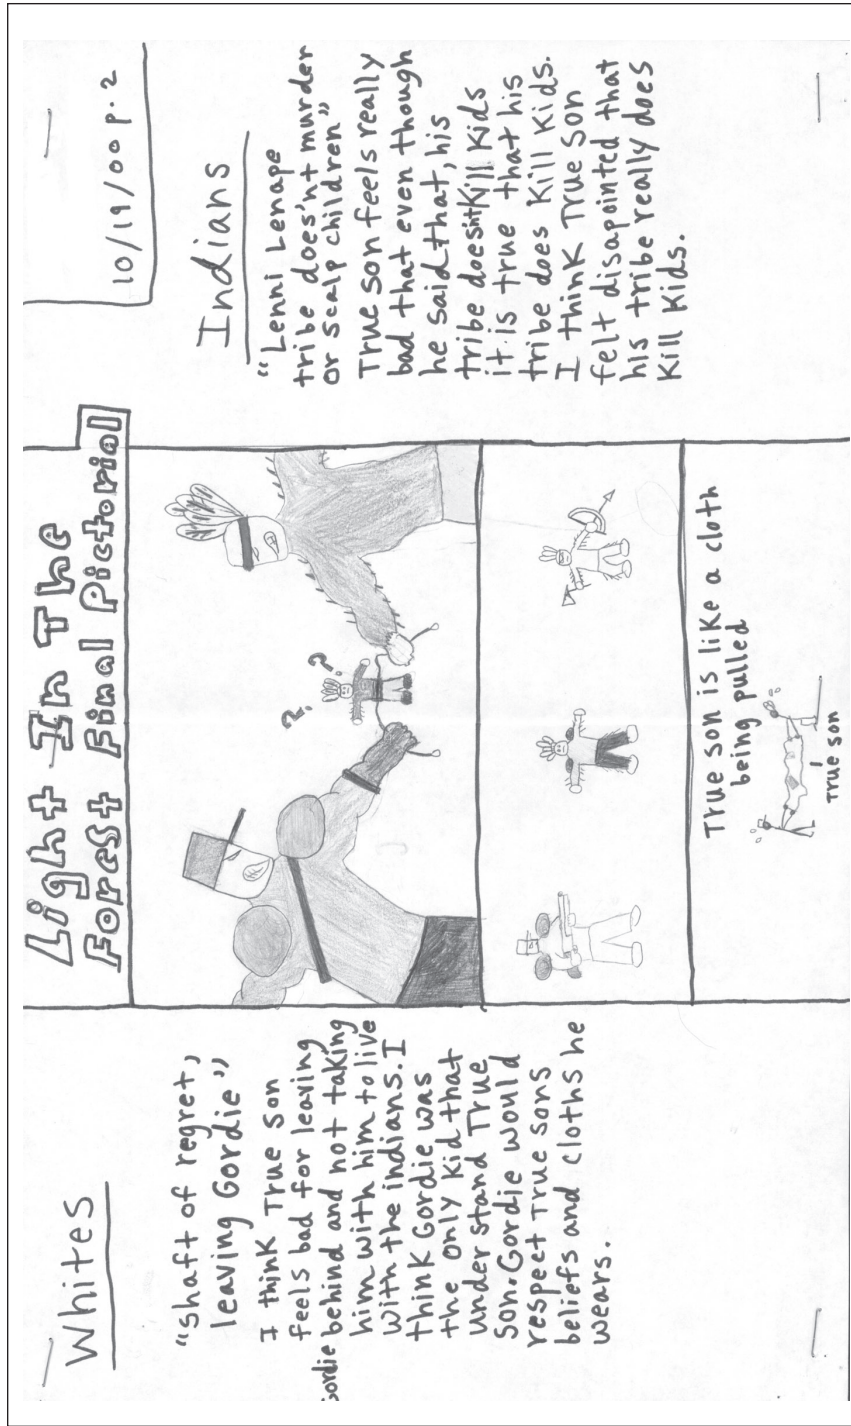 Light In The
Forest Final Pictorial
10/19/00 p. 2
Whites
"shaft of regret,
leaving Gordie"
I think True son
feels bad for leaving
Gordie behind and not taking
him with him to live
with the indians. I
think Gordie was
the only kid that
under stand True
Son. Gordie would
respect True sons
beliefs and cloths he
wears.
? ?
True son is like a cloth
being pulled
True son
Indians
"Lenni Lenape
tribe does'nt murder
or scalp children"
True son feels really
bad that even though
he said that his
tribe doesitKill Kids
it is true that his
tribe does Kill Kids.
I think True son
felt disapointed that
his tribe really does
Kill Kids.